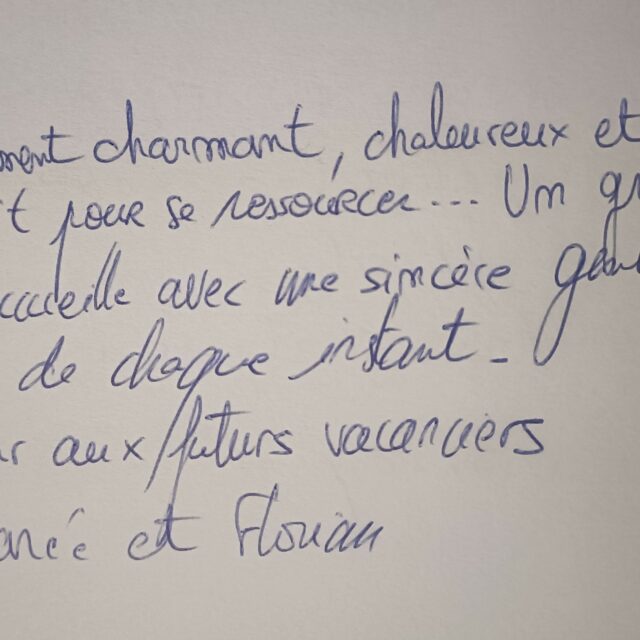 ment charmant, chaleureux et
it pour se ressourcer... Un gr
ccueille avec une sincère gén
de chaque instant.
r aux futurs vacanciers
ancé et Florian